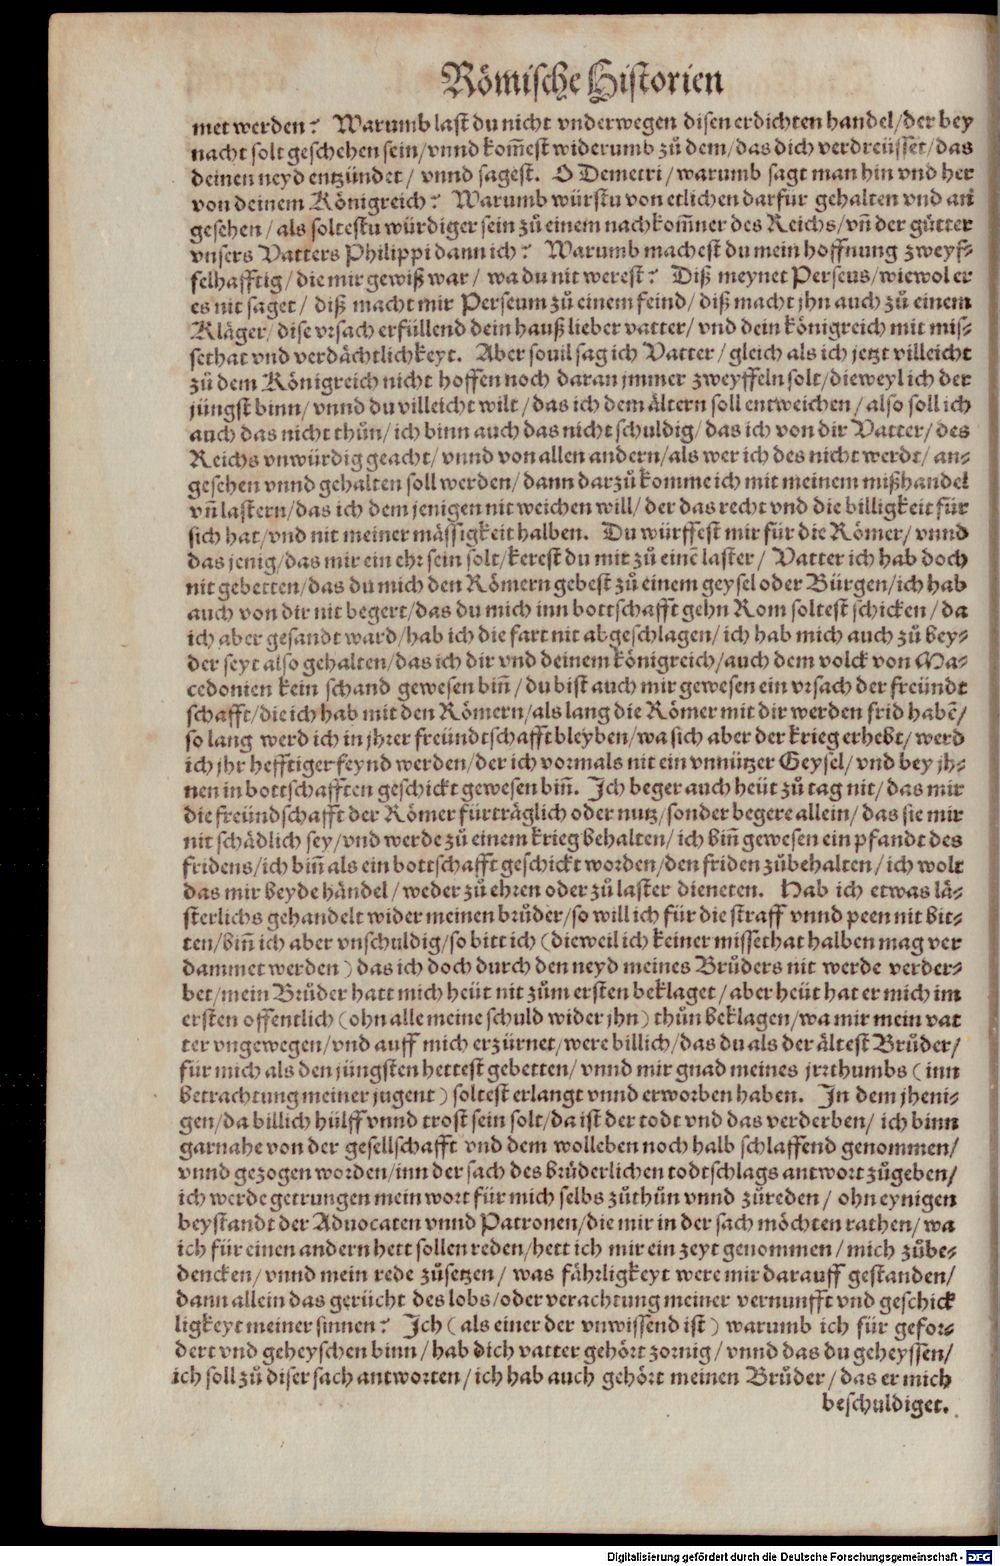 Römische Historien
met werden? Warumb last du nicht vnderwegen disen erdichten handel/der bey
nacht solt geschehen sein/vnnd kom̃est widerumb zů dem/das dich verdreüsset/das
deinen neyd entzündet/ vnnd sagest. O Demetri/warumb sagt man hin vnd her
von deinem Königreich? Warumb würstu von etlichen darfür gehalten vnd an
gesehen/als soltestu würdiger sein zů einem nachkom̃ner des Reichs/vñ der gütter
vnsers Vatters Philippi dann ich? Warumb machest du mein hoffnung zweyf⸗
felhafftig/die mir gewiß war/ wa du nit werest? Diß meynet Perseus/wiewol er
es nit saget/ diß macht mir Perseum zů einem feind/diß macht jhn auch zů einem
Kläger/dise vrsach erfüllend dein hauß lieber vatter/vnd dein königreich mit mis⸗
sethat vnd verdächtlichkeyt. Aber souil sag ich Vatter/gleich als ich jetzt villeicht
zů dem Königreich nicht hoffen noch daran jmmer zweyffeln solt/dieweyl ich der
jüngst binn/vnnd du villeicht wilt/das ich dem ältern soll entweichen/also soll ich
auch das nicht thůn/ich binn auch das nicht schuldig/das ich von dir Vatter/des
Reichs vnwürdig geacht/vnnd von allen andern/als wer ich des nicht werdt/an⸗
gesehen vnnd gehalten soll werden/dann darzů komme ich mit meinem mißhandel
vñ lastern/das ich dem jenigen nit weichen will/der das recht vnd die billigkeit für
sich hat/vnd nit meiner mässigkeit halben. Du würffest mir für die Römer/vnnd
das jenig/das mir ein ehr sein solt/kerest du mir zů einē laster/ Vatter ich hab doch
nit gebetten/das du mich den Römern gebest zů einem geysel oder Bürgen/ich hab
auch von dir nit begert/das du mich inn bottschafft gehn Rom soltest schicken/da
ich aber gesandt ward/hab ich die fart nit abgeschlagen/ich hab mich auch zů bey⸗
der seyt also gehalten/das ich dir vnd deinem königreich/auch dem volck von Ma⸗
cedonien kein schand gewesen biñ/du bist auch mir gewesen ein vrsach der freündt
schafft/die ich hab mit den Römern/als lang die Römer mit dir werden frid habē/
so lang werd ich in jhrer freündtschafft bleyben/wa sich aber der krieg erhebt/werd
ich jhr hefftiger feynd werden/der ich vormals nit ein vnnützer Geysel/vnd bey jh⸗
nen in bottschafften geschickt gewesen biñ. Ich beger auch heüt zů tag nit/das mir
die freündschafft der Römer fürträglich oder nutz/sonder begere allein/das sie mir
nit schädlich sey/vnd werde zů einem krieg behalten/ich biñ gewesen ein pfandt des
fridens/ich biñ als ein bottschafft geschickt worden/den friden zůbehalten/ich wolt
das mir beyde händel/weder zů ehren oder zů laster dieneten. Hab ich etwas lä⸗
sterlichs gehandelt wider meinen brůder/so will ich für die straff vnnd peen nit bit⸗
ten/biñ ich aber vnschuldig/so bitt ich (dieweil ich keiner missethat halben mag ver
dammet werden) das ich doch durch den neyd meines Brůders nit werde verder⸗
bet/mein Brůder hatt mich heüt nit zům ersten beklaget/aber heüt hat er mich im
ersten offentlich (ohn alle meine schuld wider jhn) thůn beklagen/wa mir mein vat
ter vngewegen/vnd auff mich erzürnet/were billich/das du als der ältest Brůder/
für mich als den jüngsten hettest gebetten/vnnd mir gnad meines jrrthumbs (inn
betrachtung meiner jugent) soltest erlangt vnnd erworben haben. In dem jheni⸗
gen/da billich hülff vnnd trost sein solt/da ist der todt vnd das verderben/ ich binn
gar nahe von der gesellschafft vnd dem wolleben noch halb schlaffend genommen/
vnnd gezogen worden/inn der sach des brůderlichen todtschlags antwort zůgeben/
ich werde getrungen mein wort für mich selbs zůthůn vnnd zůreden/ ohn eynigen
beystandt der Aduocaten vnnd Patronen/die mir in der sach möchten rathen/wa
ich für einen andern hett sollen reden/hett ich mir ein zeyt genommen/mich zůbe⸗
dencken/vnnd mein rede zůsetzen/ was fährligkeyt were mir darauff gestanden/
dann allein das gerücht des lobs/oder verachtung meiner vernunfft vnd geschick
ligkeyt meiner sinnen? Ich (als einer der vnwissend ist) warumb ich für gefor⸗
dert vnd geheyschen binn/hab dich vatter gehört zornig/vnnd das du geheyssen/
ich soll zů diser sach antworten/ich hab auch gehört meinen Brůder/das er mich
beschuldiget.
Digitalisierung gefördert durch die Deutsche Forschungsgemeinschaft - DFG